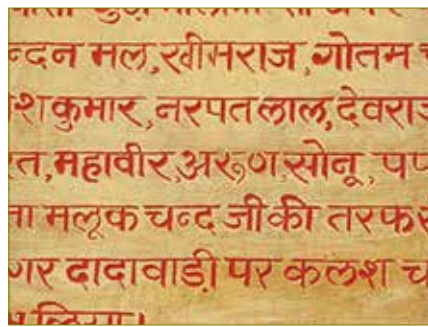 न्दन मल,खीमराज,गोतम च
शकुमार,नरपतलाल,देवराज
त,महावीर,अरूण,सोनू, पप
ता मलूक चन्द जीकी तरफ स
गर दादावाड़ी पर कलश च